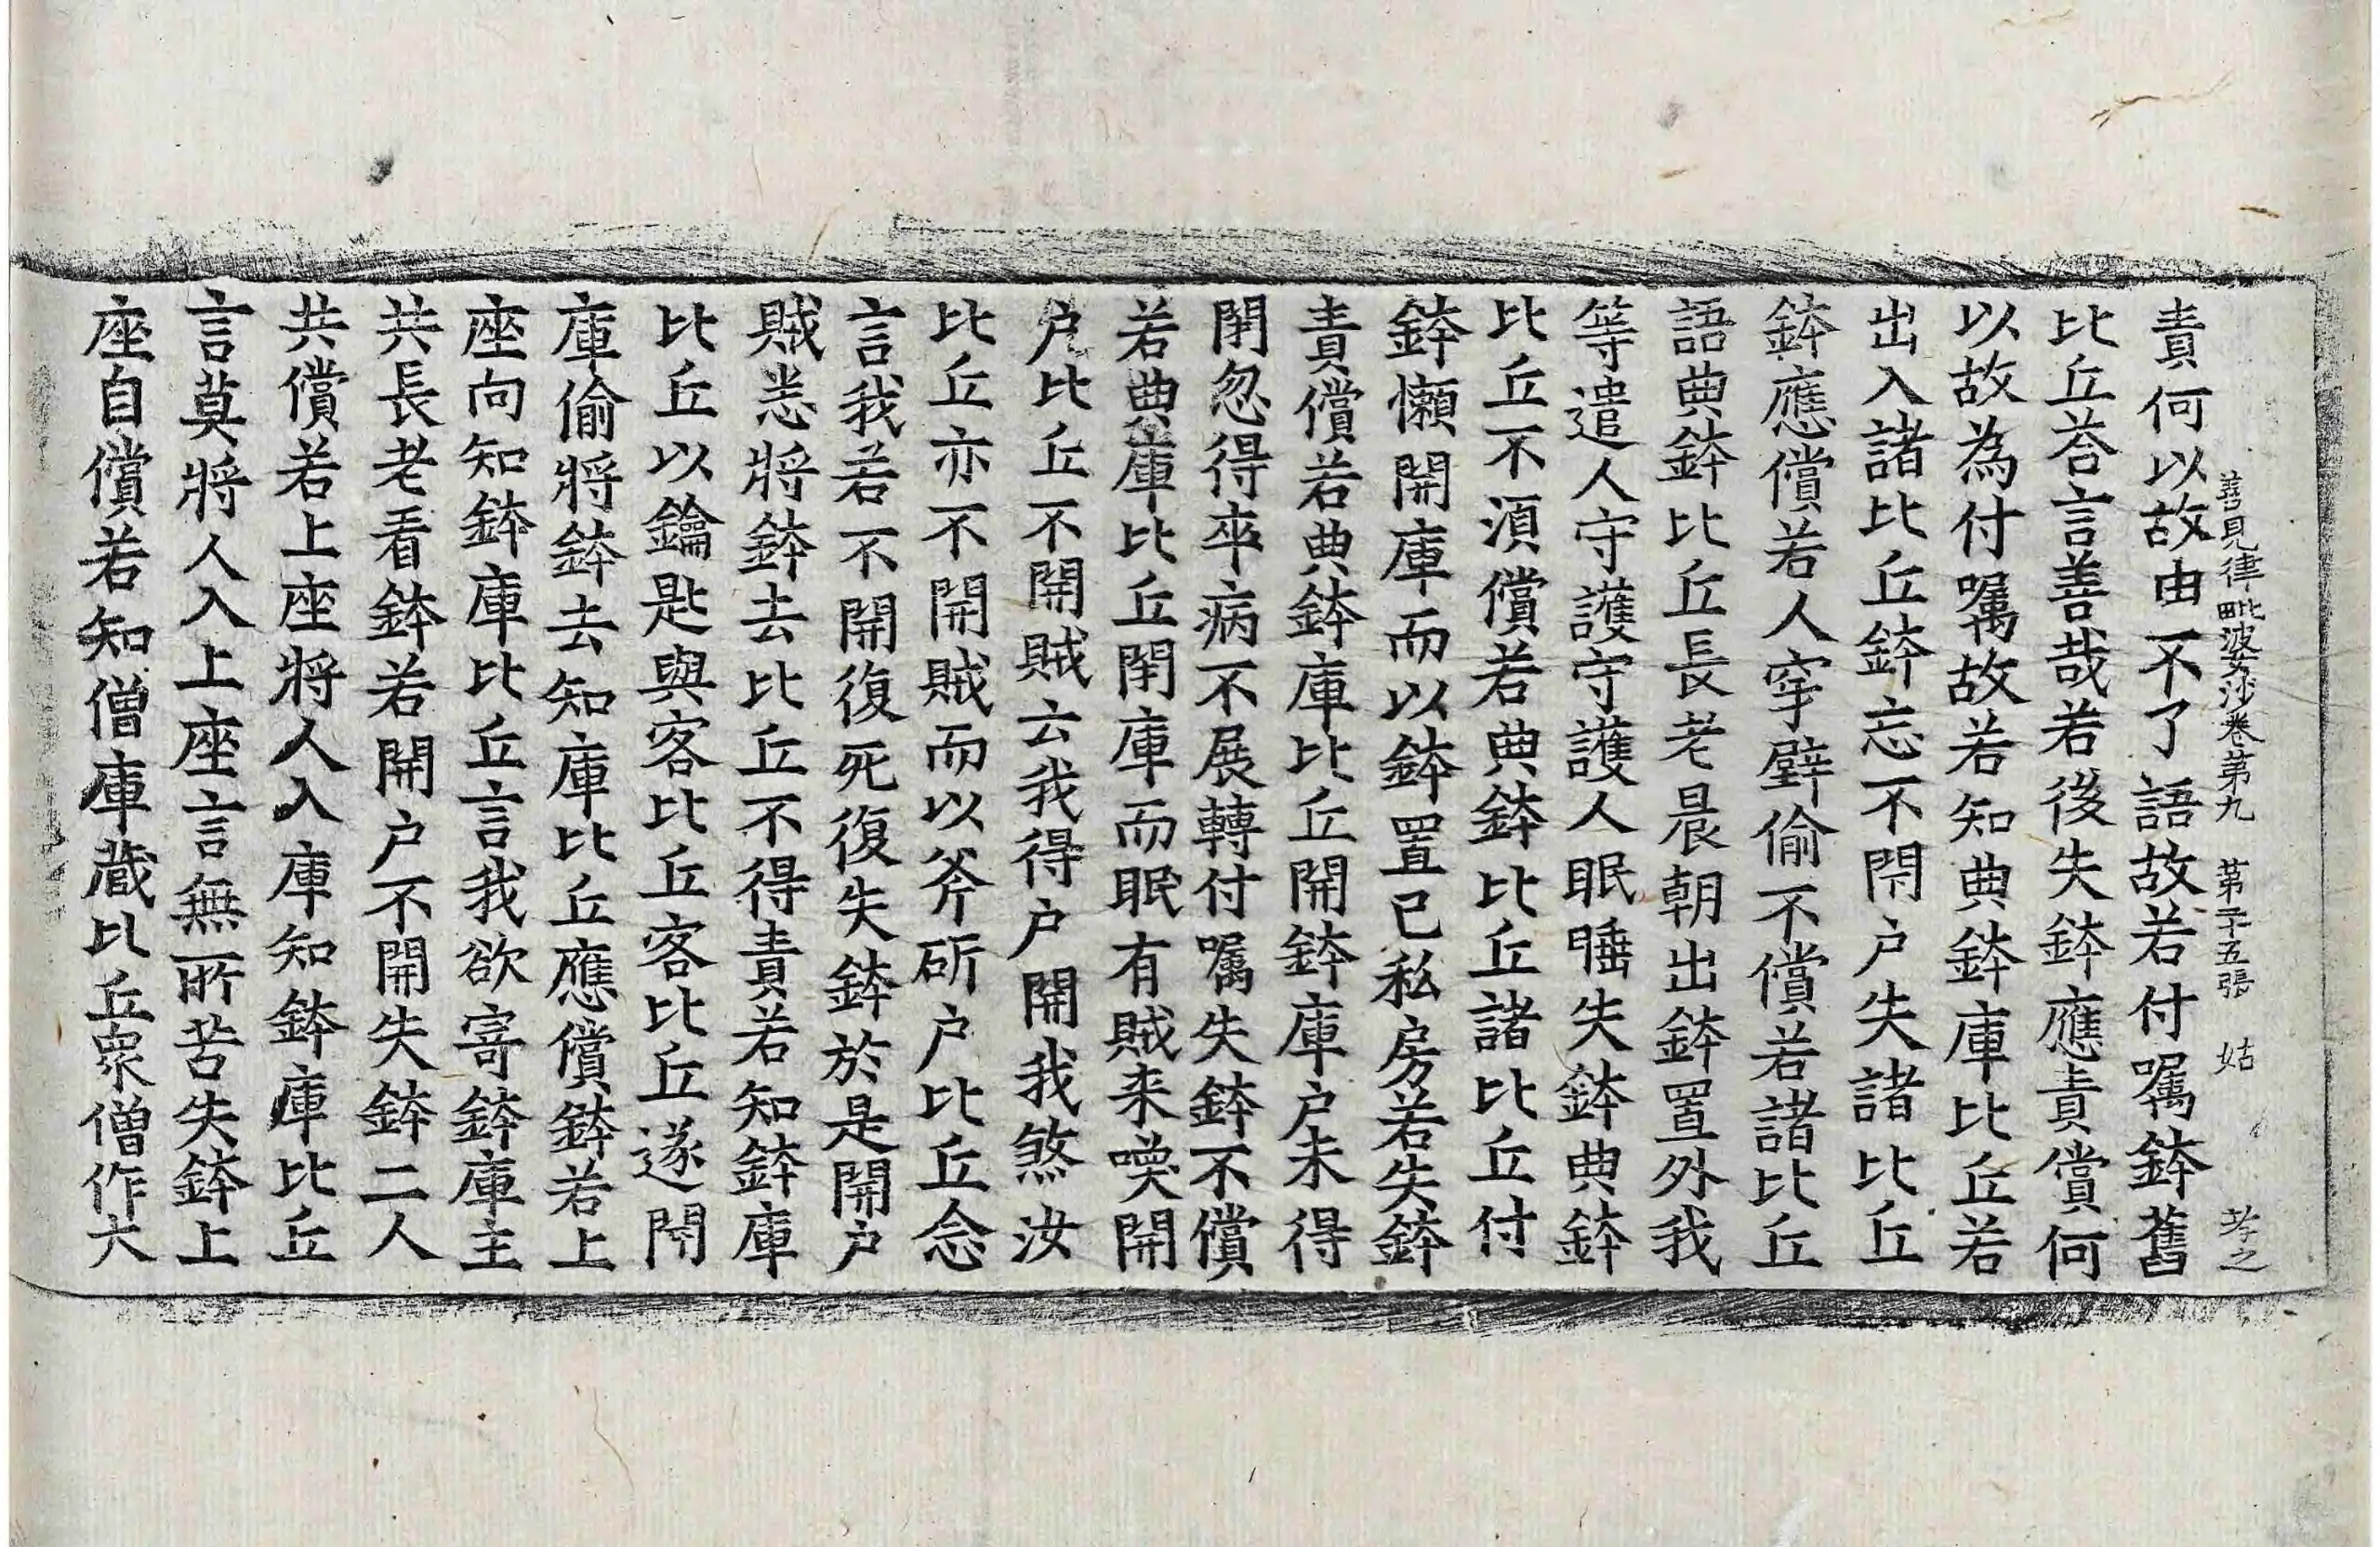 善見律毗婆沙卷第九 第二十五張 姑 孝之
責何以故由不了語故若付囑鉢舊
比丘荅言善哉若後失鉢應責償何
以故為付囑故若知典鉢庫比丘若
出入諸比丘鉢忘不閇户失諸比丘
鉢應償若人穿壁偷不償若諸比丘
語典鉢比丘長老晨朝出鉢置外我
等遣人守護守護人眠睡失鉢典鉢
比丘不須償若典鉢比丘諸比丘付
鉢懶開庫而以鉢置己私房若失鉢
責償若典鉢庫比丘開鉢庫户未得
閇忽得卒病不展轉付囑失鉢不償
若典庫比丘閇庫而眠有賊来喚開
户比丘不開賊云我得户開我煞汝
比丘亦不開賊而以斧斫户比丘念
言我若不開復死復失鉢於是開户
賊恙將鉢去比丘不得責若知鉢庫
比丘以鑰匙與客比丘客比丘遂開
庫偷將鉢去知庫比丘應償鉢若上
座向知鉢庫比丘言我欲寄鉢庫主
共長老看鉢若開户不開失鉢二人
共償若上座將人入庫知鉢庫比丘
言莫將人入上座言無所苦失鉢上
座自償若知僧庫藏比丘衆僧作大